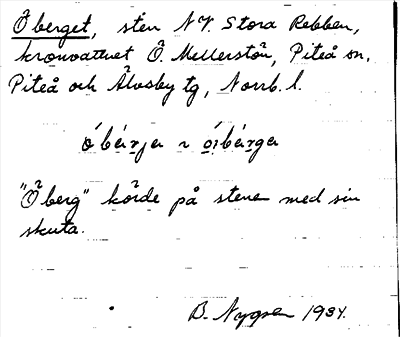 Öberget, sten NV. Stora Rebben,
kronovattnet Ö. Mellerstön, Piteå sn,
Piteå och Älvsby tg, Norrb. l.
"Öberg" körde på stenen med sin
skuta.
B. Nygren 1934.